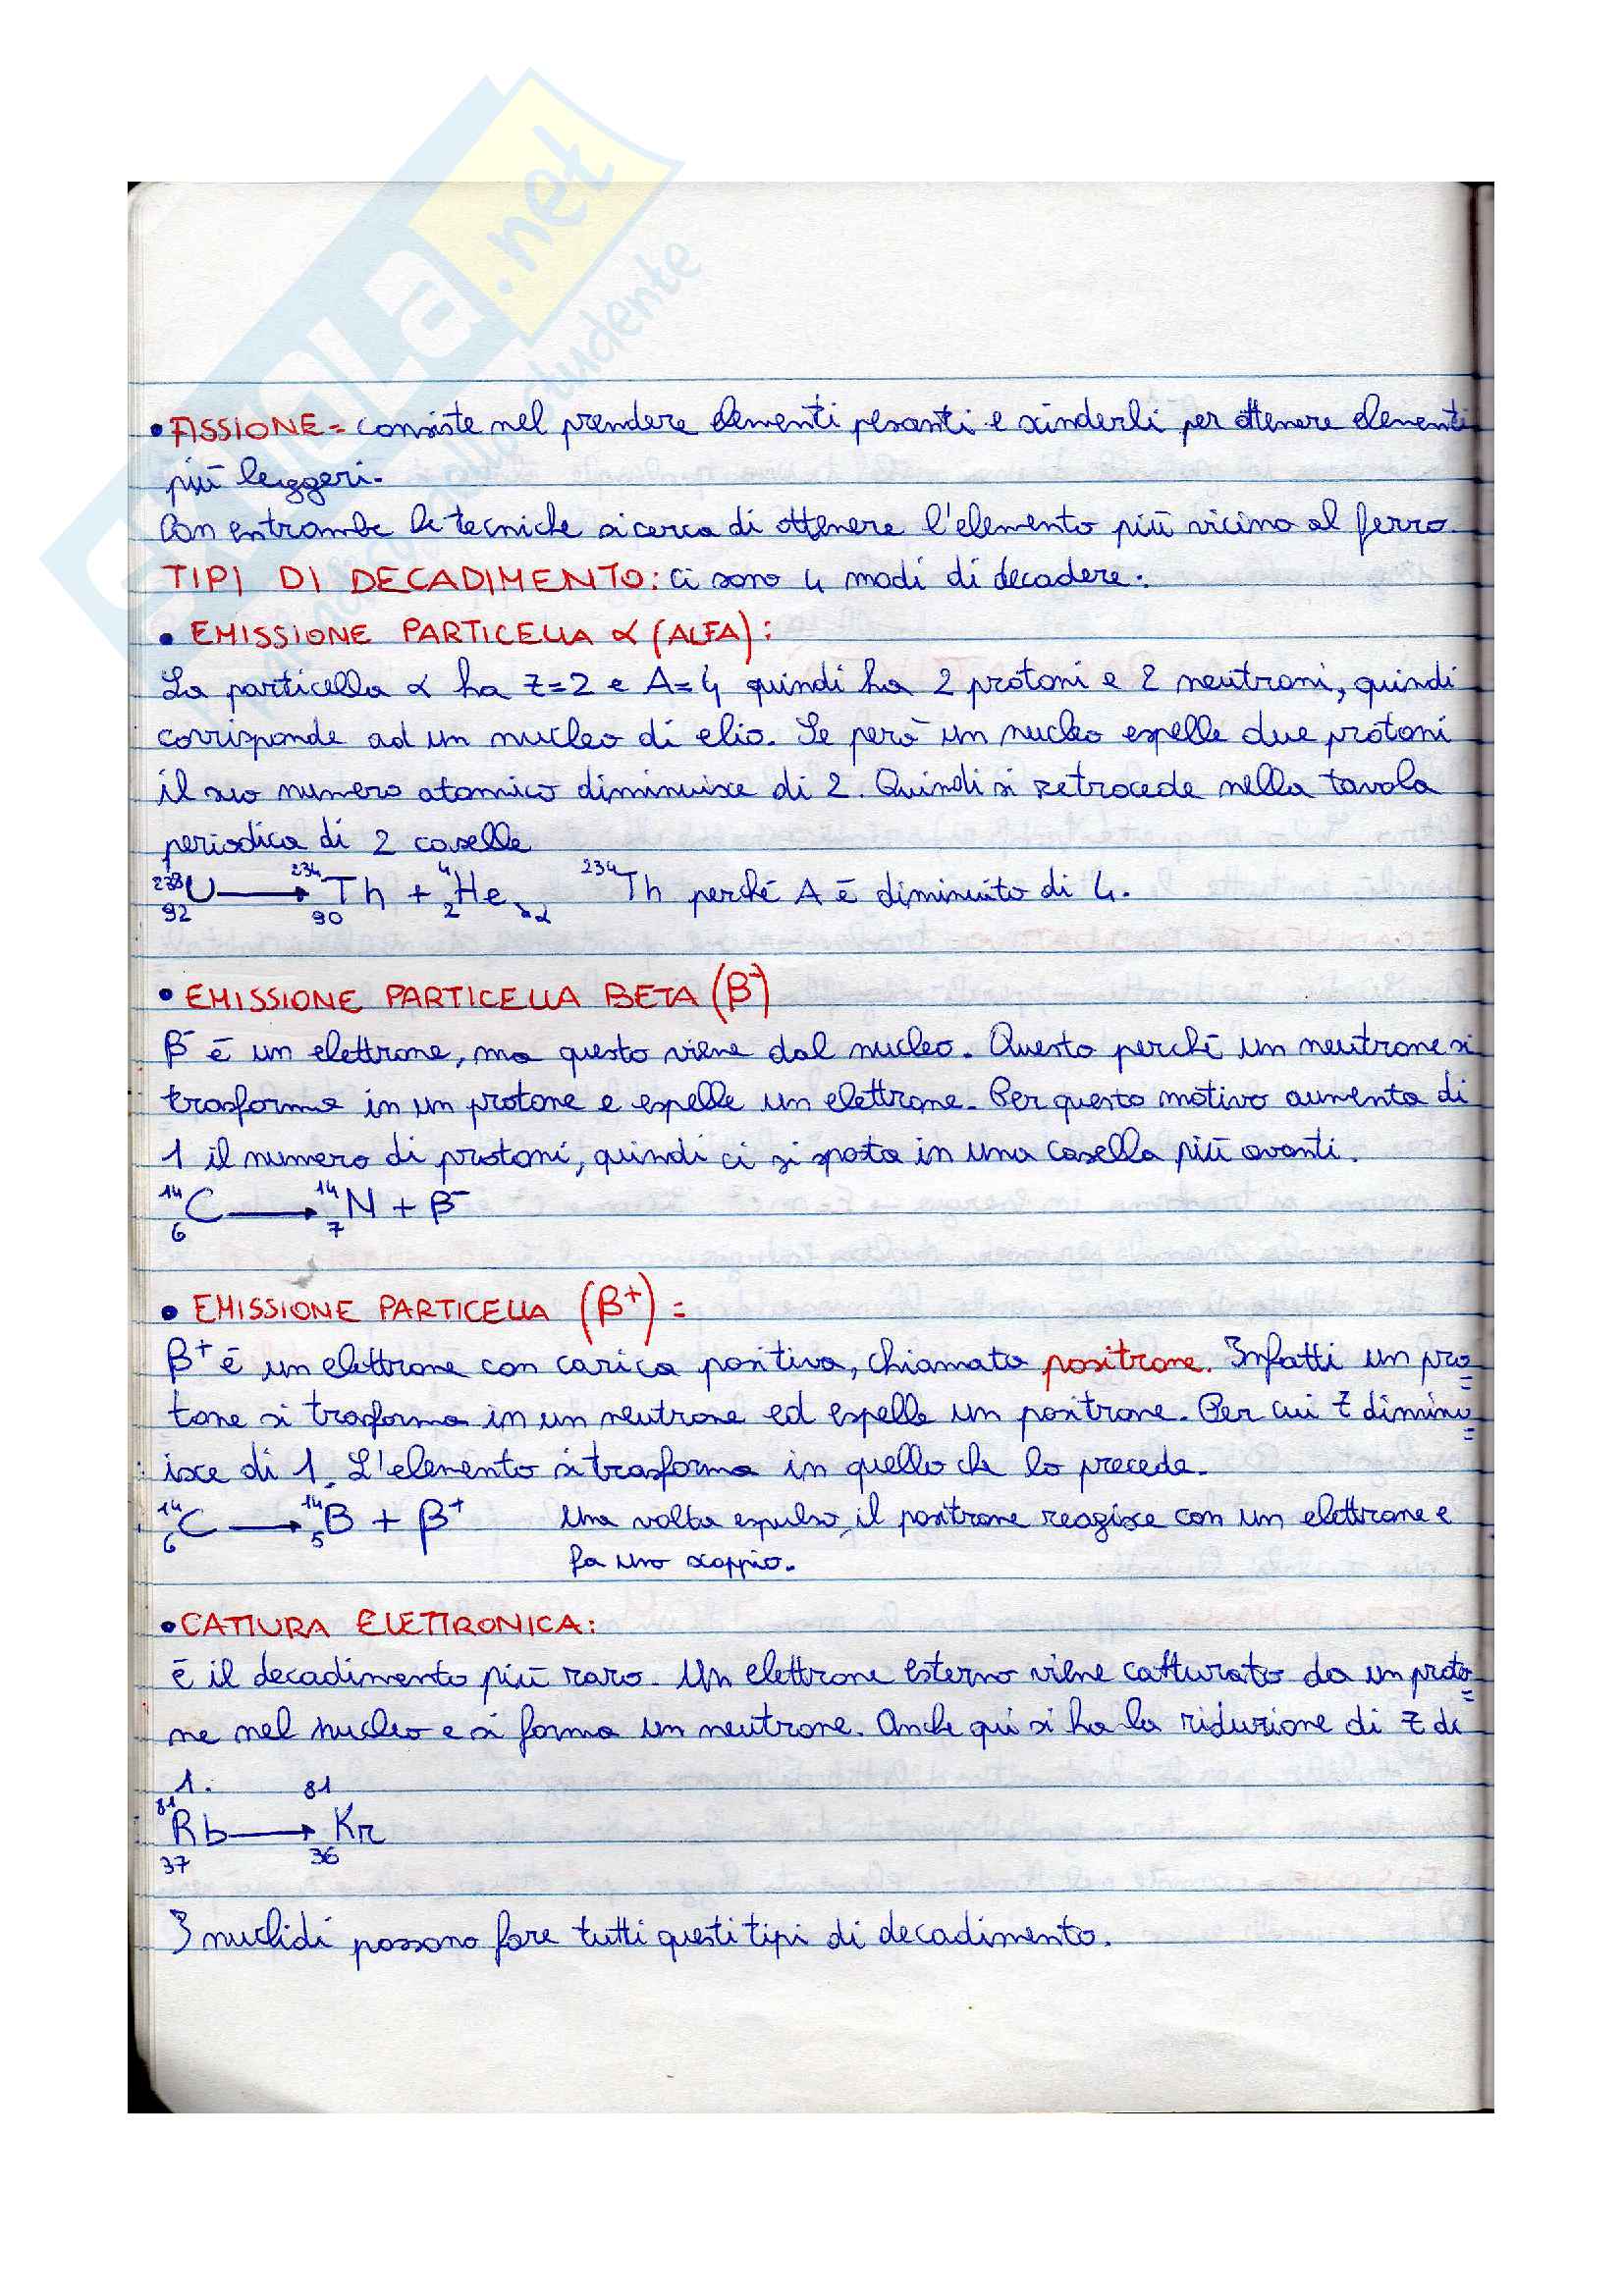 • FISSIONE = consiste nel prendere elementi pesanti e scinderli per ottenere elementi
più leggeri.
Con entrambe le tecniche si cerca di ottenere l'elemento più vicino al ferro.
TIPI DI DECADIMENTO: ci sono 4 modi di decadere:
• EMISSIONE PARTICELLA α (ALFA):
La particella α ha Z=2 e A=4 quindi ha 2 protoni e 2 neutroni, quindi
corrisponde ad un nucleo di elio. Se però un nucleo espelle due protoni
il suo numero atomico diminuisce di 2. Quindi si retrocede nella tavola
periodica di 2 caselle
²³⁸₉₂U → ²³⁴₉₀Th + ⁴₂He ↘α ²³⁴Th perché A è diminuito di 4.
• EMISSIONE PARTICELLA BETA (β⁻)
β⁻ è un elettrone, ma questo viene dal nucleo. Questo perché un neutrone si
trasforma in un protone e espelle un elettrone. Per questo motivo aumenta di
1 il numero di protoni, quindi ci si sposta in una casella più avanti.
¹⁴₆C → ¹⁴₇N + β⁻
• EMISSIONE PARTICELLA (β⁺) =
β⁺ è un elettrone con carica positiva, chiamato positrone. Infatti un pro=
tone si trasforma in un neutrone ed espelle un positrone. Per cui Z diminu=
isce di 1. L'elemento si trasforma in quello che lo precede.
¹⁴₆C → ¹⁴₅B + β⁺ Una volta espulso, il positrone reagisce con un elettrone e
fa uno scoppio.
• CATTURA ELETTRONICA:
è il decadimento più raro. Un elettrone esterno viene catturato da un proto=
ne nel nucleo e si forma un neutrone. Anche qui si ha la riduzione di Z di
1.
⁸¹₃₇Rb → ⁸¹₃₆Kr
I nuclidi possono fare tutti questi tipi di decadimento.